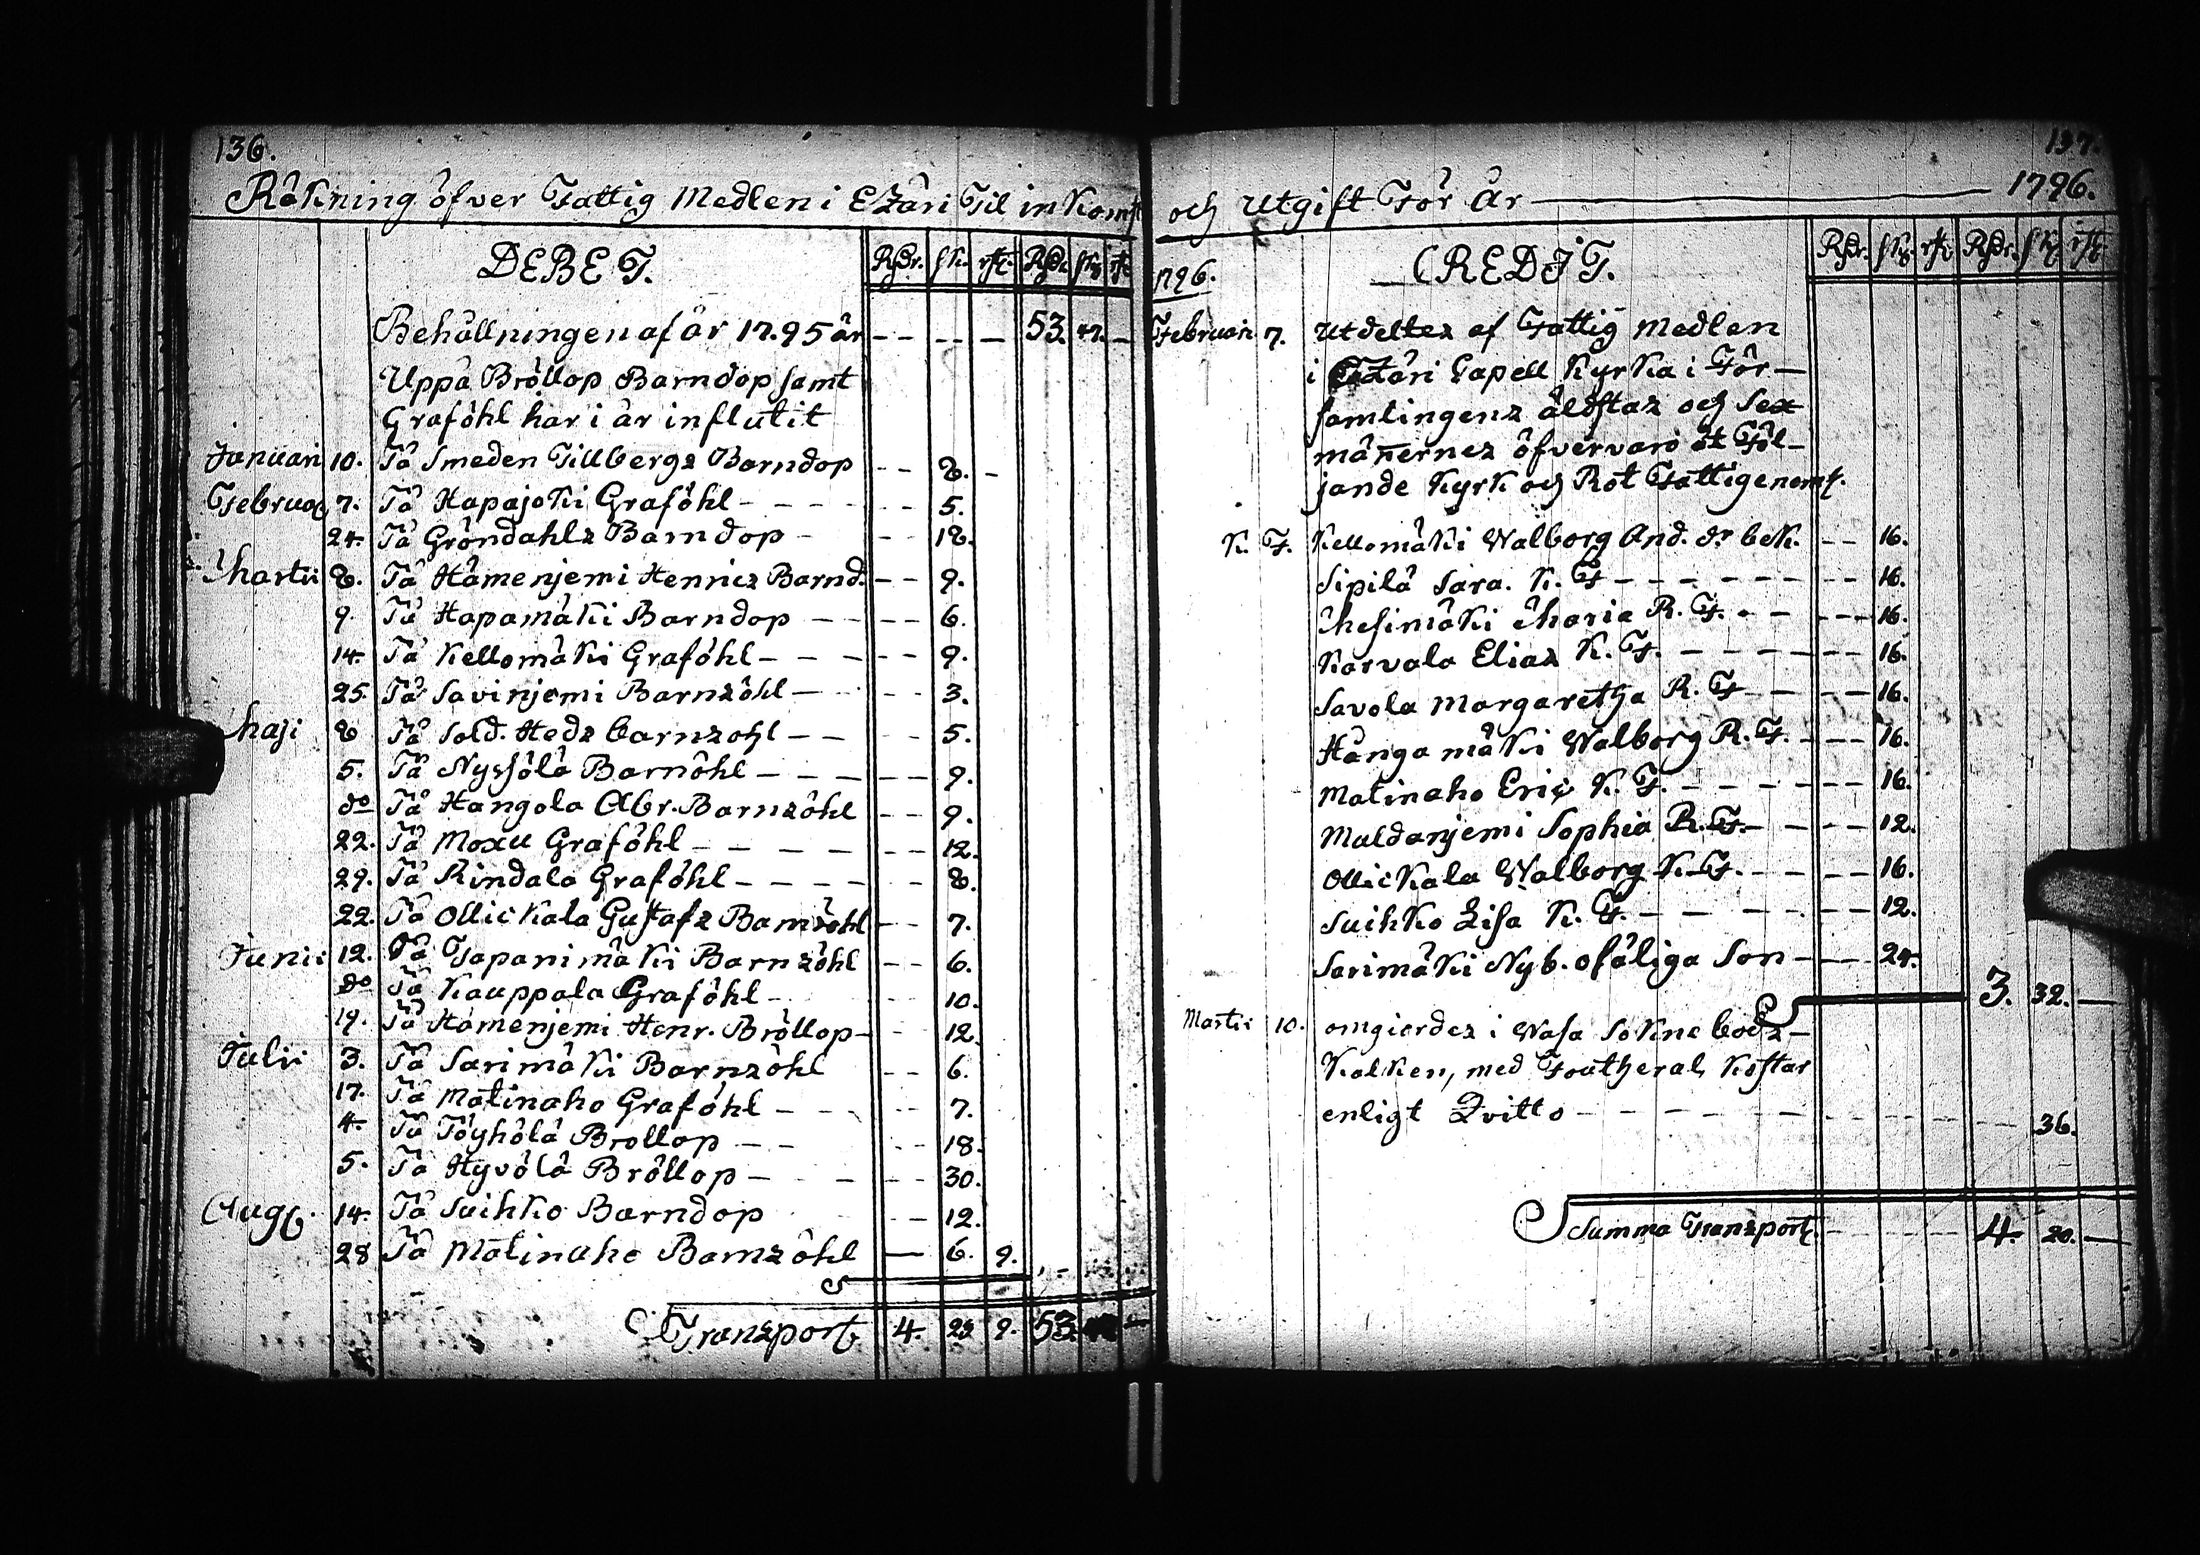 136.
Räkning öfver Fattig Medlen i Etzäri Til inkomst
DEBET.
Rdr. sk. rst. Rdr. sk. rst.
Behållningen af år 1795 år - - - 53. 47. -
Uppå Bröllop Barndop samt
Graföhl har i år influtit
Januari 10. På Smeden Tillbergs Barndop - - 8. -
Februar 7. På Hapajoki Graföhl - - - - 5.
24. På Gröndahls Barndop - - - 18.
Martii 8. På Hämenjemi Henrics Barnd. - - 9.
9. På Hapamäki Barndop - - - - 6.
14. På Kellomäki Graföhl - - - - - 9.
25. På Savinjemi Barnsöhl - - - - 3.
Maji 8 På Sold. Heds barnsohl - - - - 5.
5. På Nyssölä Barnöhl - - - - - - 9.
do På Hangola Abr. Barnsöhl - - 9.
22. På Moxu Graföhl - - - - - - - 12.
29. På Rindala Graföhl - - - - - - 8.
22. På Ollickala Gustafs Barnsöhl - - 7.
Junii 12. På Tapanimäki Barnsöhl - - 6.
do På Kauppala Graföhl - - - 10.
19. På Hämenjemi Henr. Bröllop - - 12.
Julii 3. På Sarimäki Barnsöhl - - 6.
17. På Matinaho Graföhl - - - - 7.
4. På Töyhölä Bröllop - - - - 18.
5. På Hyvölä Bröllop - - - - - 30.
Aug. 14. På Suihko Barndop - - 12.
28 På Matinaho Barnsöhl - 6. 9.
Transport 4. 29 9. 53. -
137.
och Utgift För År 1796.
1796. CREDIT.
Rdr. sk. rst. Rdr. sk. rst.
Februari 7. Utdeltes af Fattig Medlen
i Etzäri Capell Kyrka i För-
samlingens äldstas och Sex-
männernes öfvervaro åt Föl-
jande Kyrk och Rot Fattige
K. F. Kellomäki Walborg And. dr bek. - - 16.
Sipilä Sara. K. F - - - - - - - - 16.
Mesimäki Maria R. F. - - - - - 16.
Karvala Elias K. F. - - - - - - - 16.
Savola Margaretha R. F - - - - - 16.
Hanga mäki Walborg R. F. - - - 16.
Matinaho Eric K. F. - - - - - - - 16.
Muldanjemi Sophia R. F. - - - - - 12.
Ollickala Walborg K. F. - - - - - 16.
Suihko Lisa K. F. - - - - - - - 12.
Sarimäki Nyb. ofäliga Son - - - 24.
3. 32. -
Martii 10. omgiordes i Wasa Sokne bods-
Kalken, med Foutheral, Kostar
enligt Qvitto - - - - - - - - - - - 36.
Summa Transport - - - - - 4. 20. -